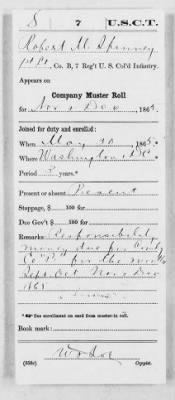 S 7 U.S.C.T.
Robert M. Spinney
1st Lt., Co. B, 7 Reg't U. S. Col'd Infantry.
Appears on
Company Muster Roll
for Nov & Dec, 1865.
Joined for duty and enrolled:
When May 30, 1865.*
Where Washington D C
Period 3 years.*
Present or absent Present
Stoppage, $ 100 for
Due Gov't $ 100 for
Remarks: Responsibility
money due for Comdg
Co "B" for the months
Sept Oct Nov & Dec
1865
Book mark:
(358c) Copyist.